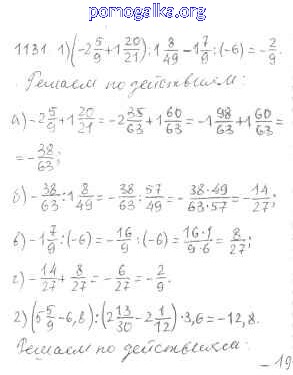 pomogalka.org
1131 1) (-2 5/9 + 1 20/21) : 1 8/49 - 1 7/9 : (-6) = -2/9.
Решаем по действиям:
а) -2 5/9 + 1 20/21 = -2 35/63 + 1 60/63 = -1 98/63 + 1 60/63 =
= -38/63;
б) -38/63 : 1 8/49 = -38/63 : 57/49 = -38·49/63·57 = -14/27;
в) -1 7/9 : (-6) = -16/9 : (-6) = 16·1/9·6 = 8/27;
г) -14/27 + 8/27 = -6/27 = -2/9.
2) (5 5/9 - 6,8) : (2 13/30 - 2 1/12) · 3,6 = -12,8.
Решаем по действиям:
-19